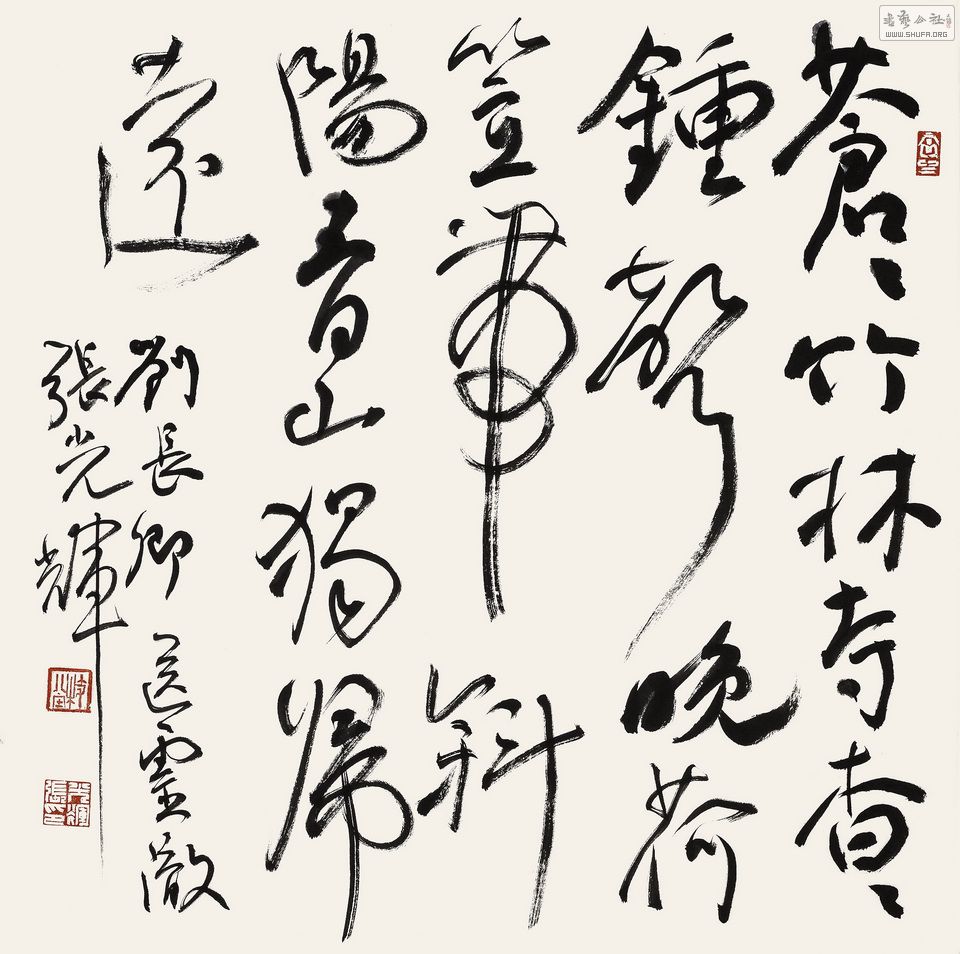 蒼〻竹林寺杳〻
鍾聲晚荷
笠帶斜
陽青山獨歸
遠
劉長卿送靈澈
張光輝
書藝公社
WWW.SHUFA.ORG